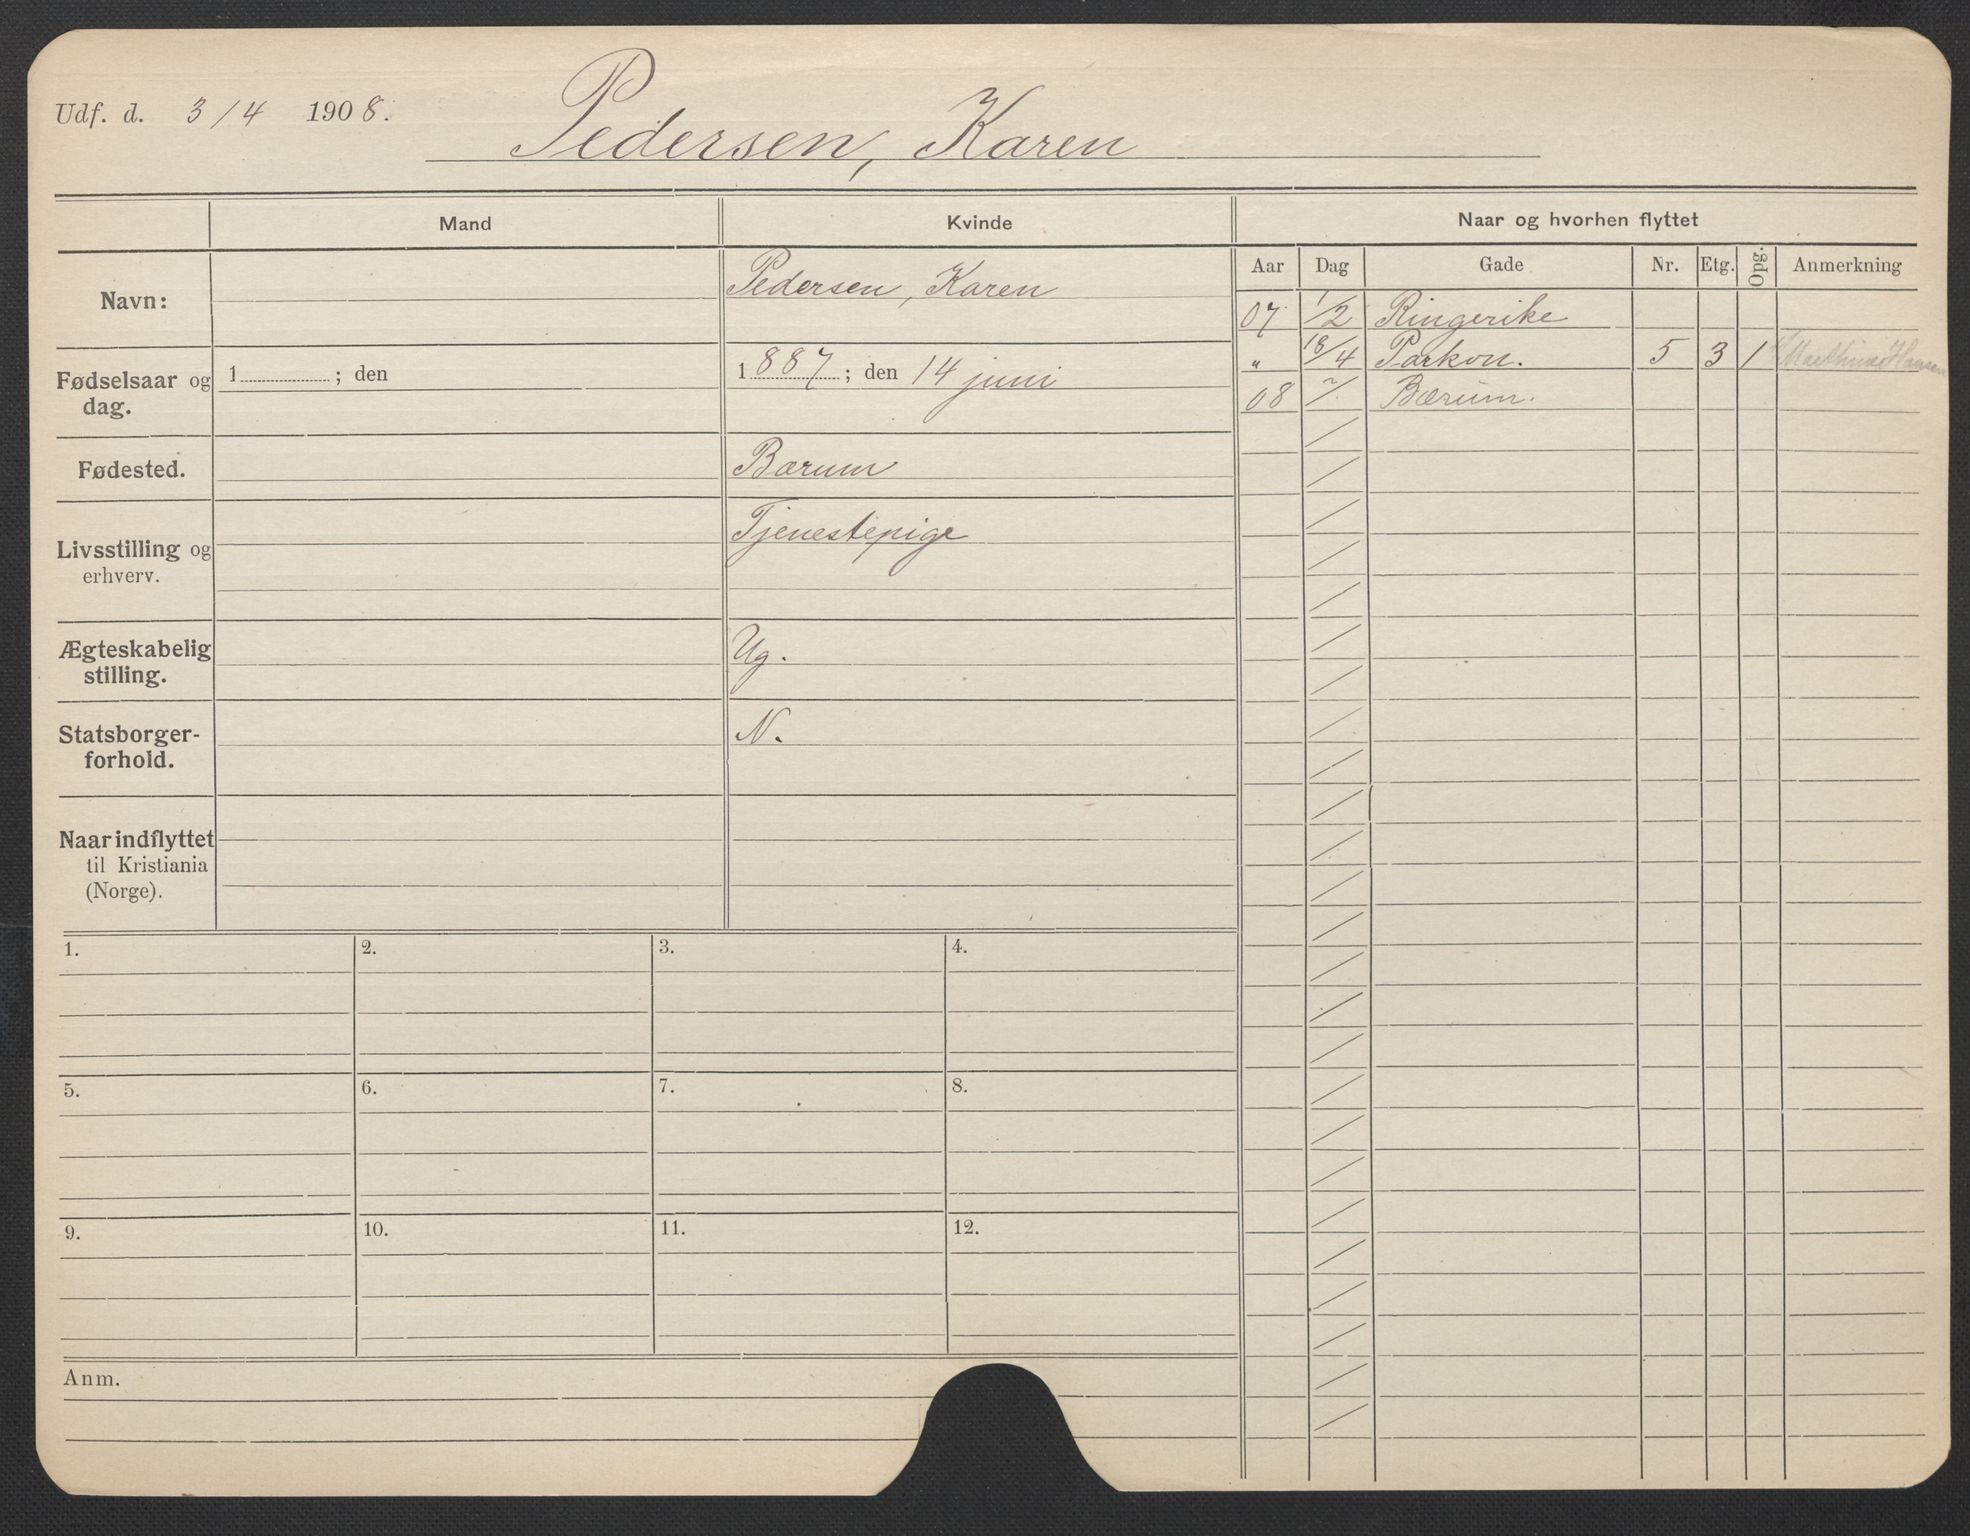 Udf. d. 3/4 1908.
Pedersen, Karen
Mand
Kvinde
Naar og hvorhen flyttet
Aar Dag Gade Nr. Etg. Opg. Anmerkning
Navn:
Pedersen, Karen
Fødselsaar og dag.
1 ; den
1887 ; den 14 juni
Fødested.
Bærum
Livsstilling og
erhverv.
Tjenestepige
Ægteskabelig
stilling.
Ug.
Statsborger-
forhold.
N.
Naar indflyttet
til Kristiania
(Norge).
07 1/2 Ringerike
" 18/4 Parkvn. 5 3 1 Hansen
08 Bærum.
1. 2. 3. 4.
5. 6. 7. 8.
9. 10. 11. 12.
Anm.